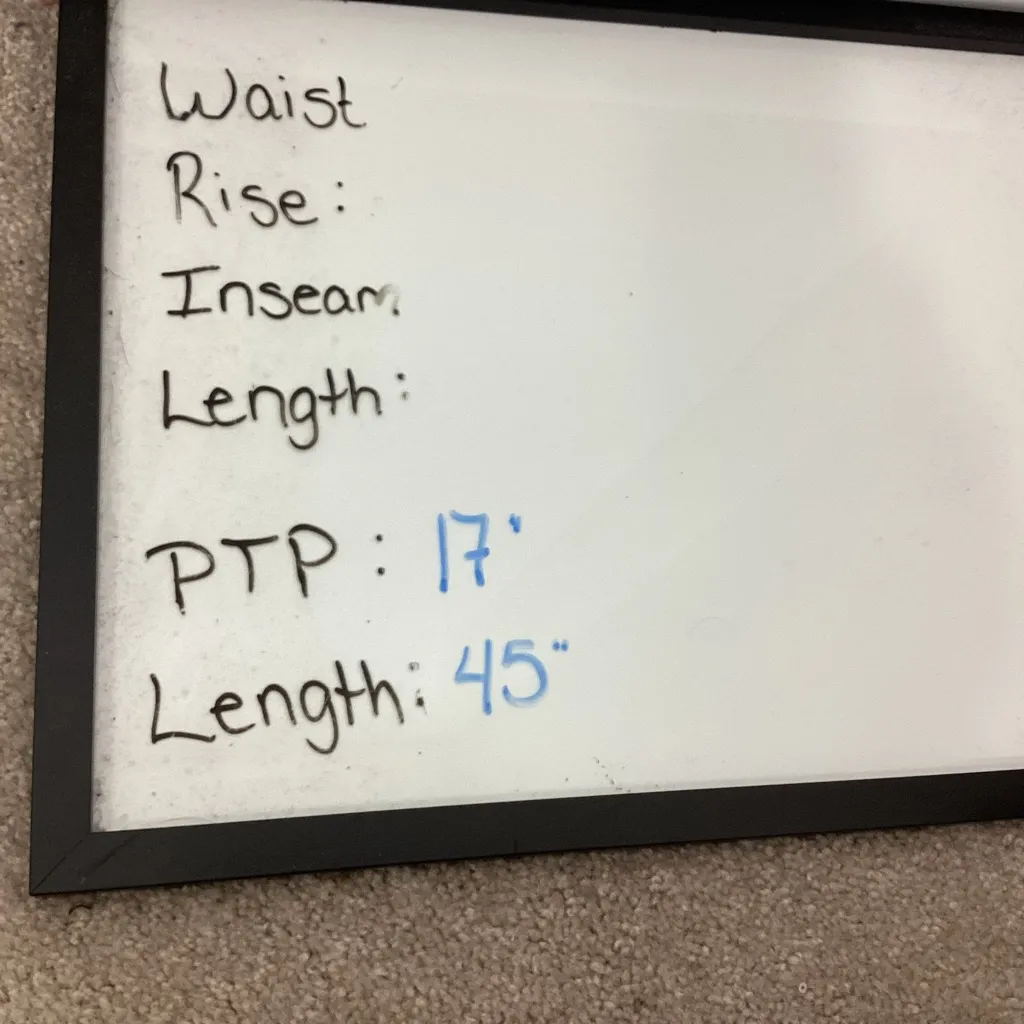 Waist
Rise:
Inseam
Length:
PTP: 17'
Length: 45"